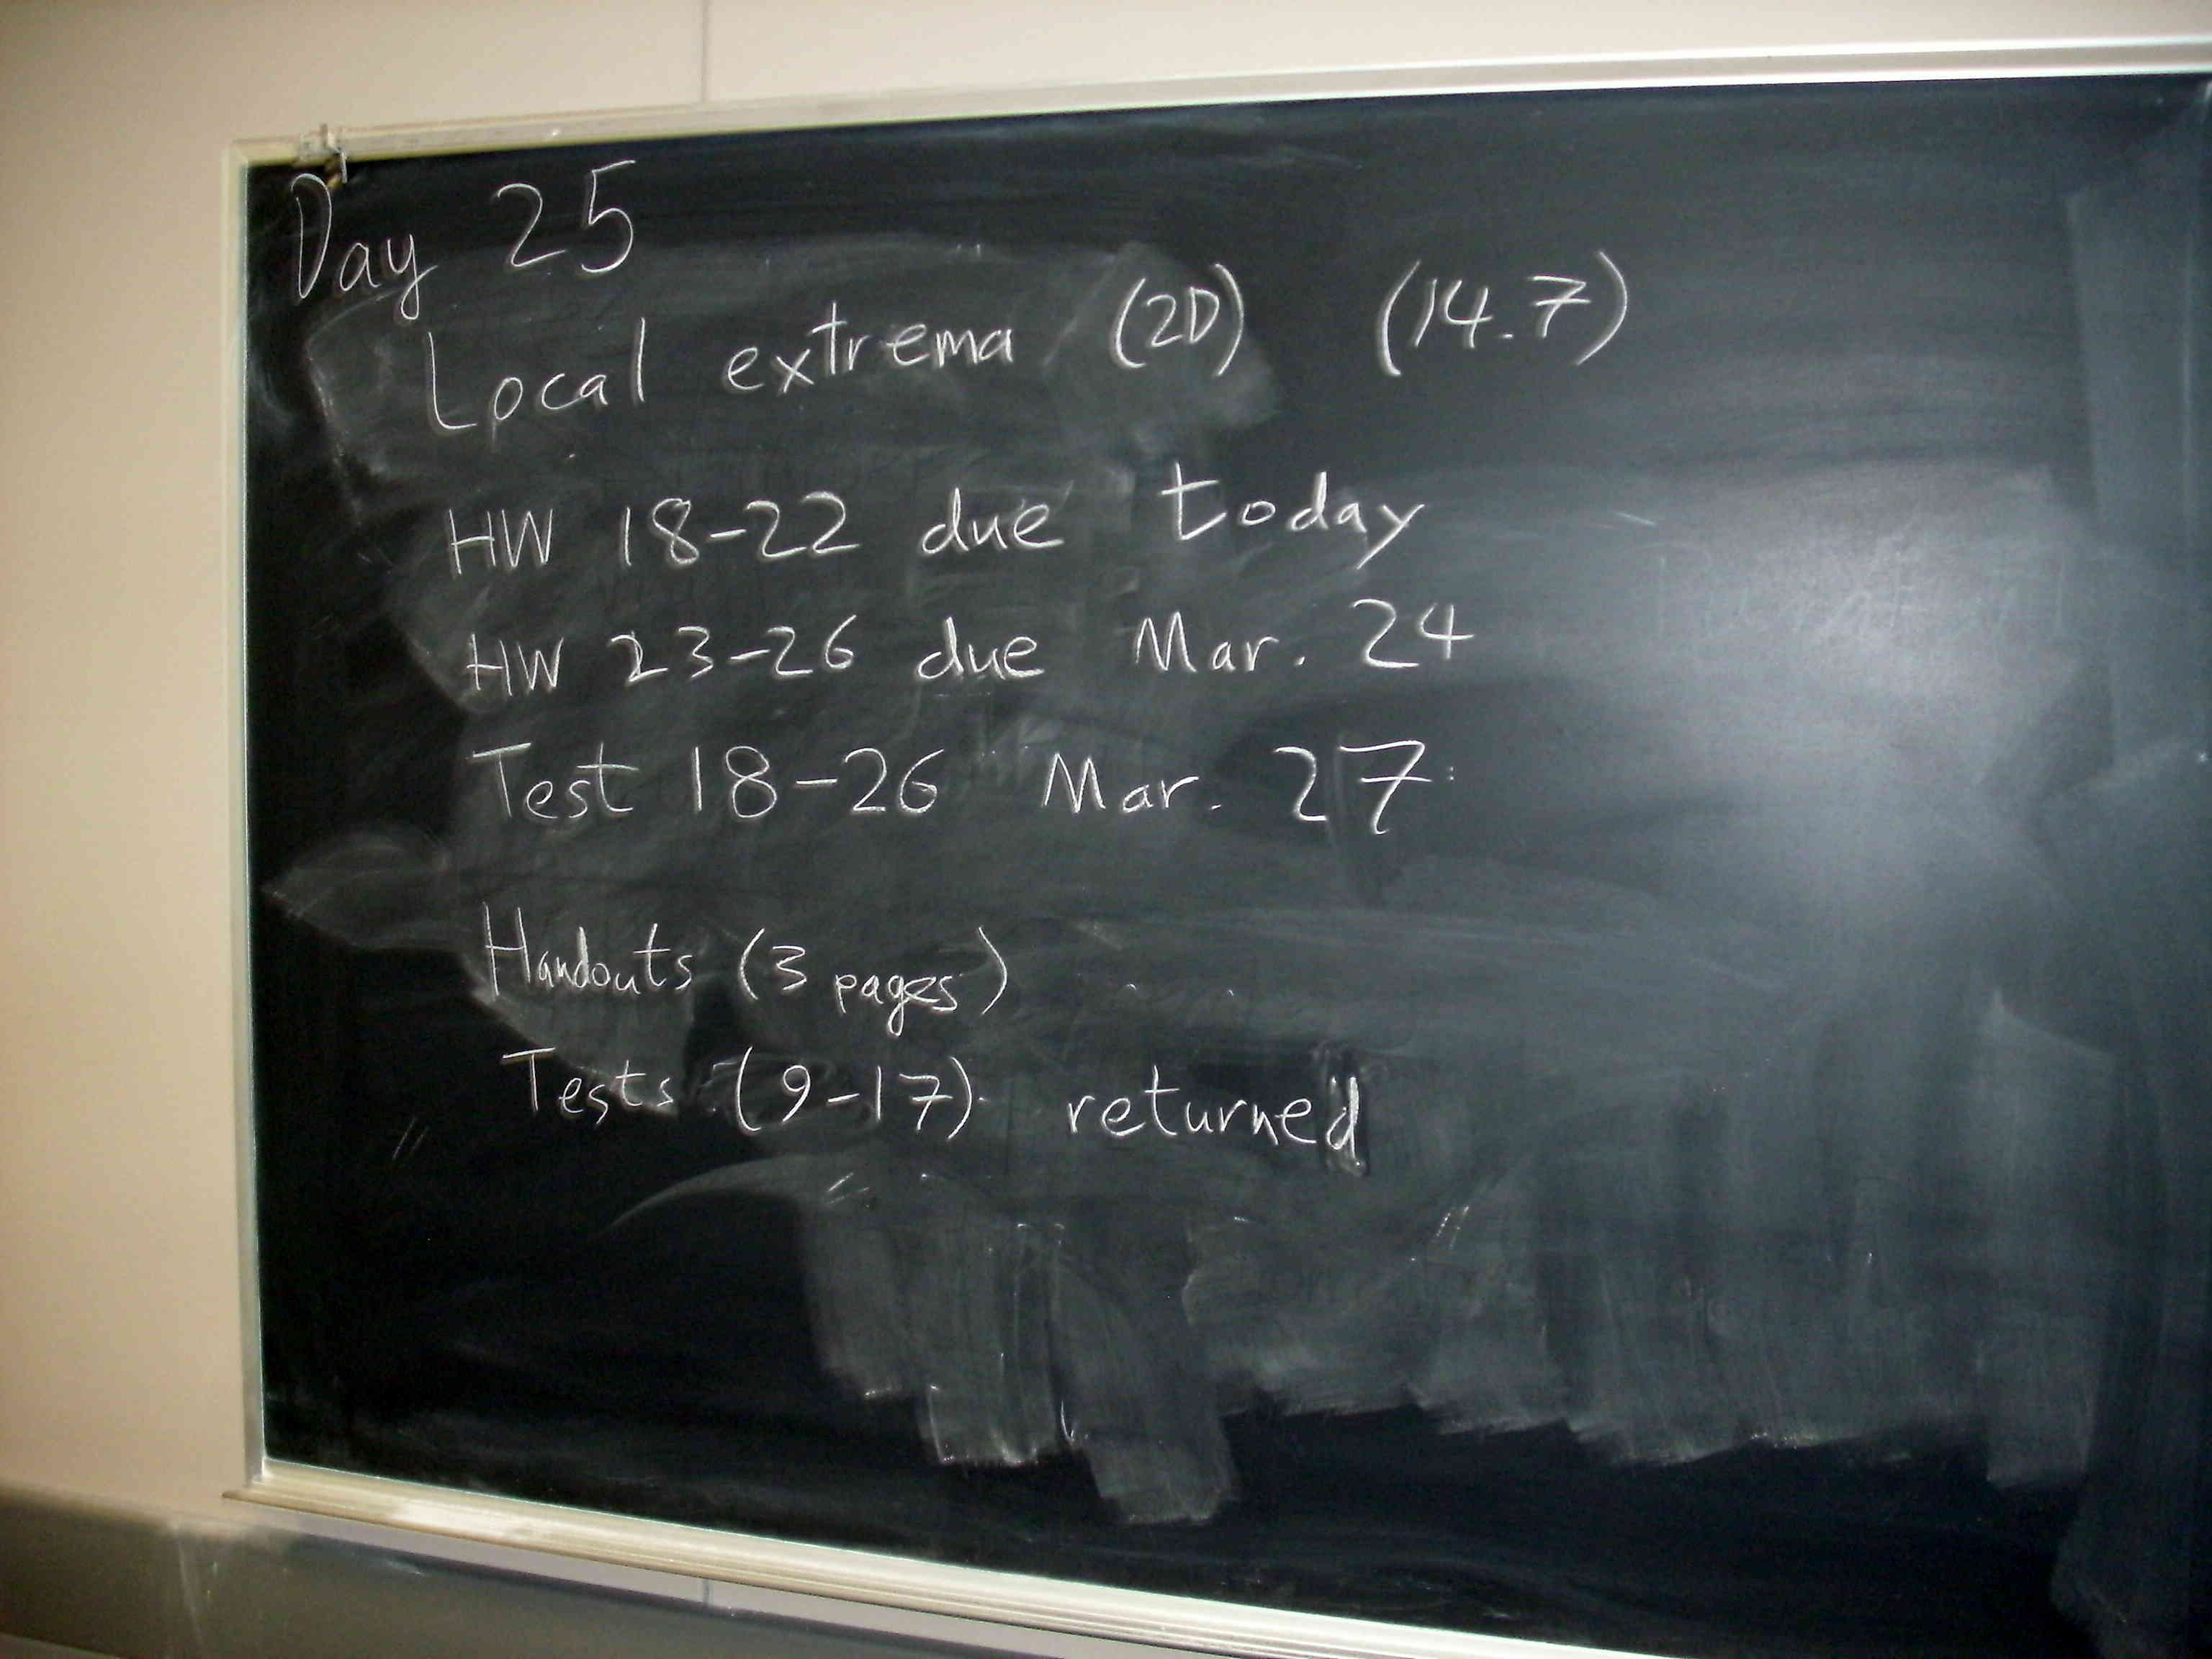 Day 25
Local extrema (2D) (14.7)
HW 18-22 due today
HW 23-26 due Mar. 24
Test 18-26 Mar. 27
Handouts (3 pages)
Tests (9-17) returned